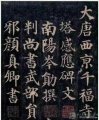 大唐西京千福寺多寶佛
塔感應碑文
南陽岑勛撰
判尚書武部員
琊顏真卿書